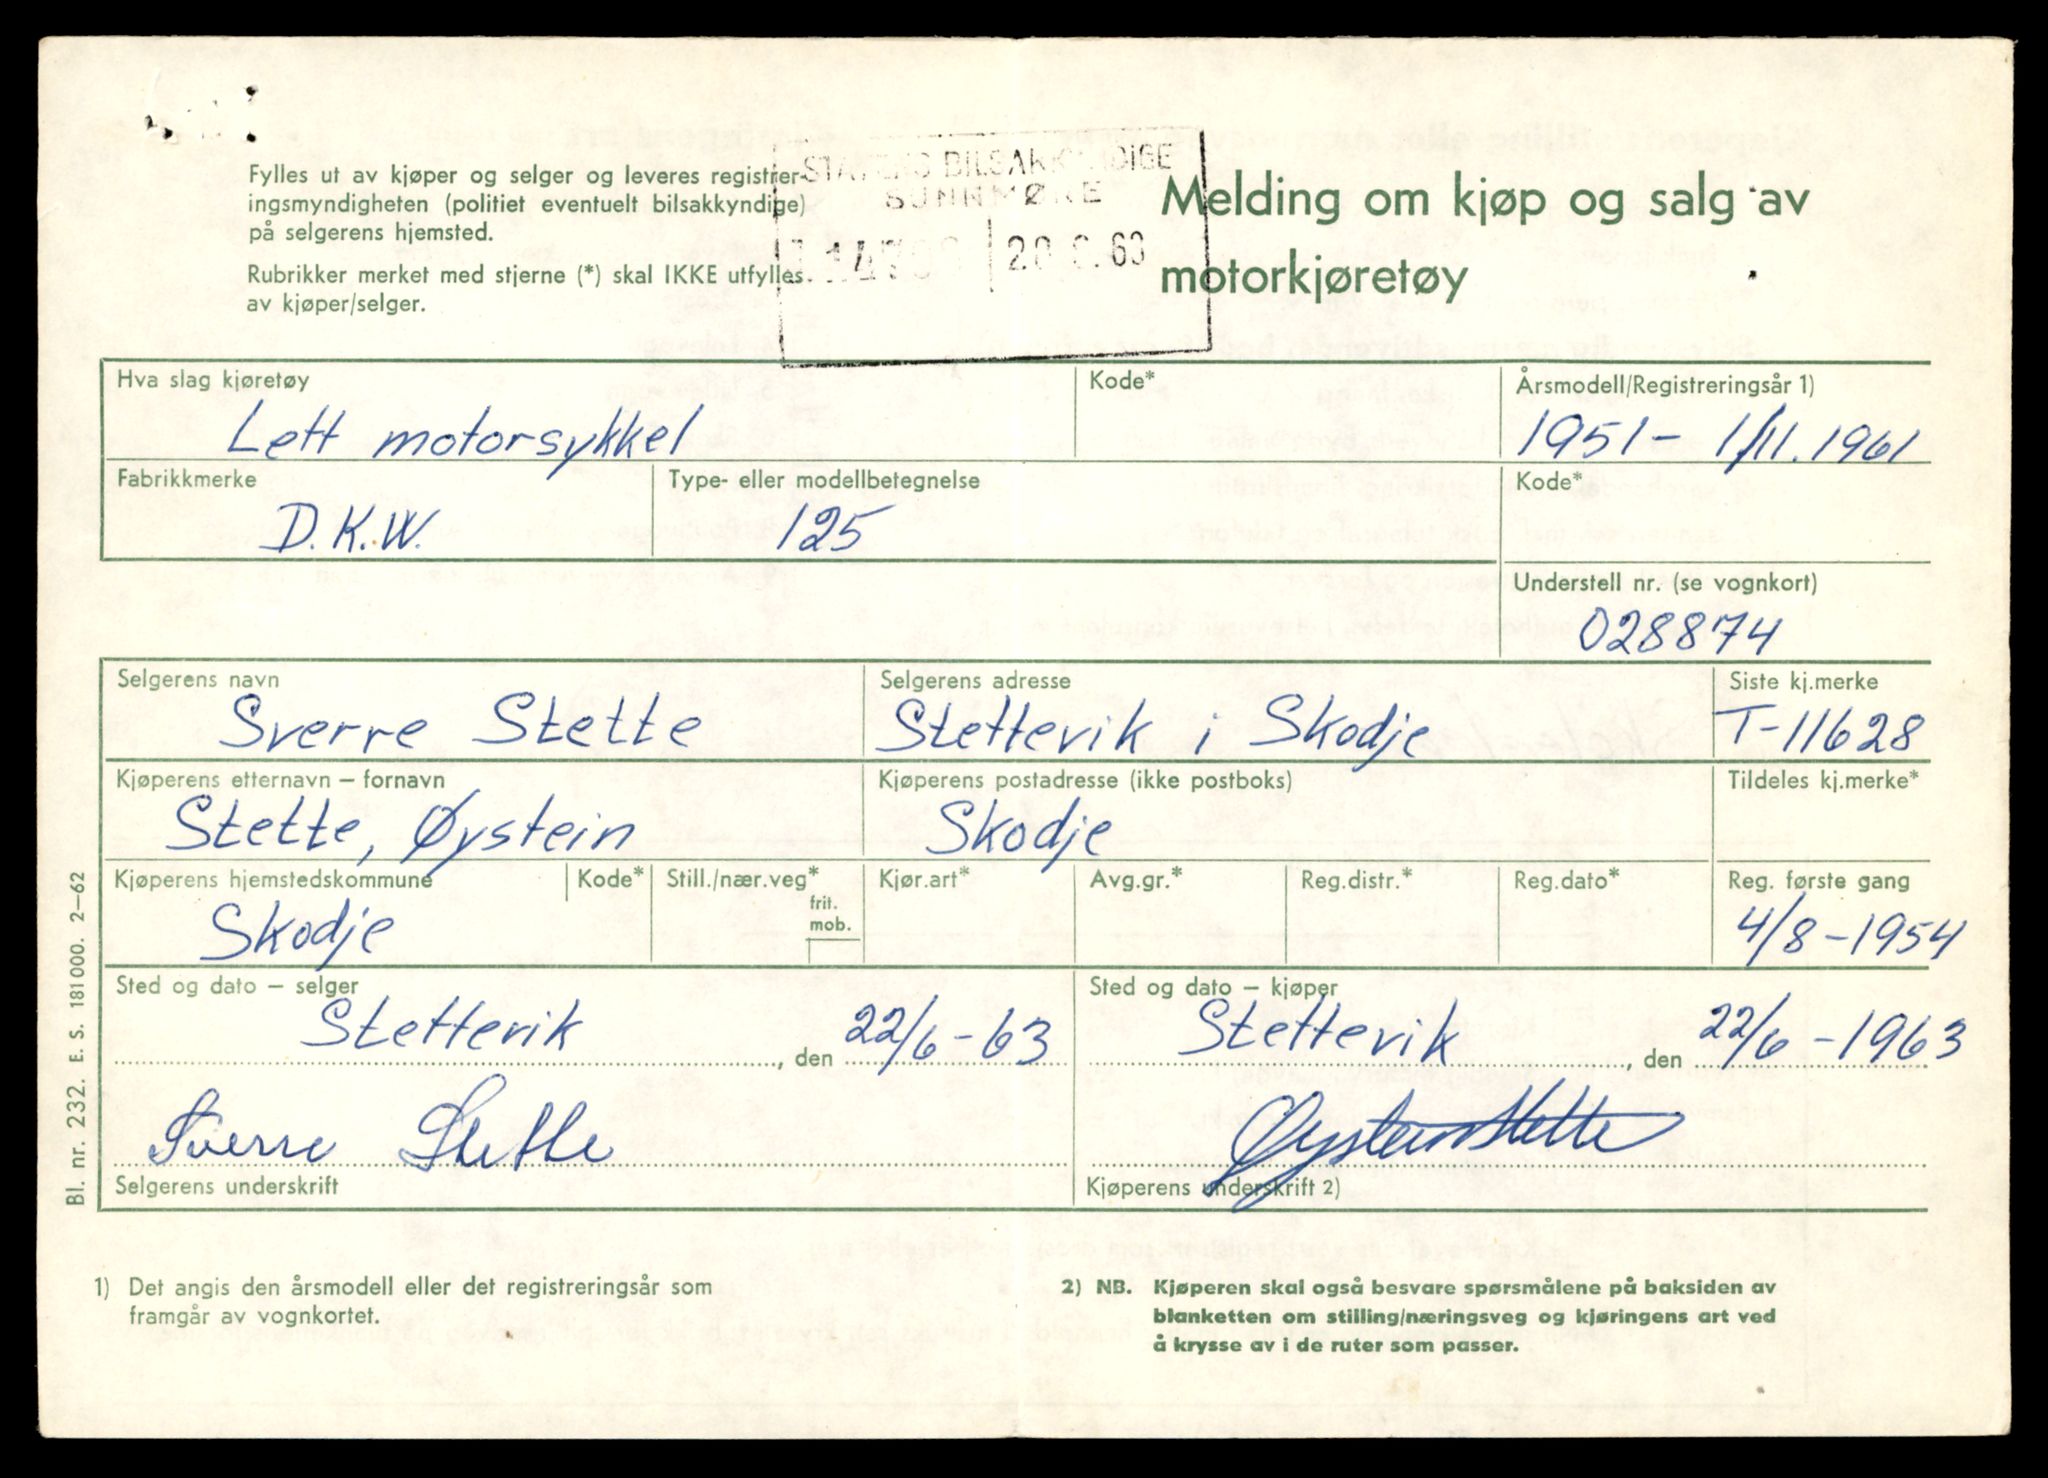 Fylles ut av kjøper og selger og leveres registrer-
ingsmyndigheten (politiet eventuelt bilsakkyndige)
på selgerens hjemsted.
Rubrikker merket med stjerne (*) skal IKKE utfylles
av kjøper/selger.
STATENS BILSAKKYNDIGE
SUNNMØRE
Melding om kjøp og salg av
motorkjøretøy
Hva slag kjøretøy Kode* Årsmodell/Registreringsår 1)
Lett motorsykkel 1951- 1/11.1961
Fabrikkmerke Type- eller modellbetegnelse Kode*
D.K.W. 125
Understell nr. (se vognkort)
028874
Selgerens navn Selgerens adresse Siste kj.merke
Sverre Stette Stettevik i Skodje T-11628
Kjøperens etternavn – fornavn Kjøperens postadresse (ikke postboks) Tildeles kj.merke*
Stette, Øystein Skodje
Kjøperens hjemstedskommune Kode* Still./nær.veg* Kjør.art* Avg.gr.* Reg.distr.* Reg.dato* Reg. første gang
frit.
mob.
Skodje 4/8-1954
Sted og dato – selger Sted og dato – kjøper
Stettevik, den 22/6-63 Stettevik, den 22/6-1963
Sverre Stette Øystein Stette
Selgerens underskrift Kjøperens underskrift 2)
1) Det angis den årsmodell eller det registreringsår som
framgår av vognkortet.
2) NB. Kjøperen skal også besvare spørsmålene på baksiden av
blanketten om stilling/næringsveg og kjøringens art ved
å krysse av i de ruter som passer.
Bl. nr. 232. E. S. 181000. 2–62